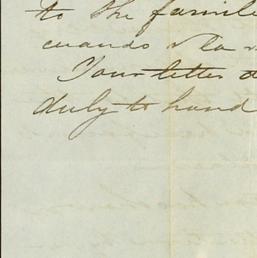 to the famile
cuando v la
Your letter
duly to hand